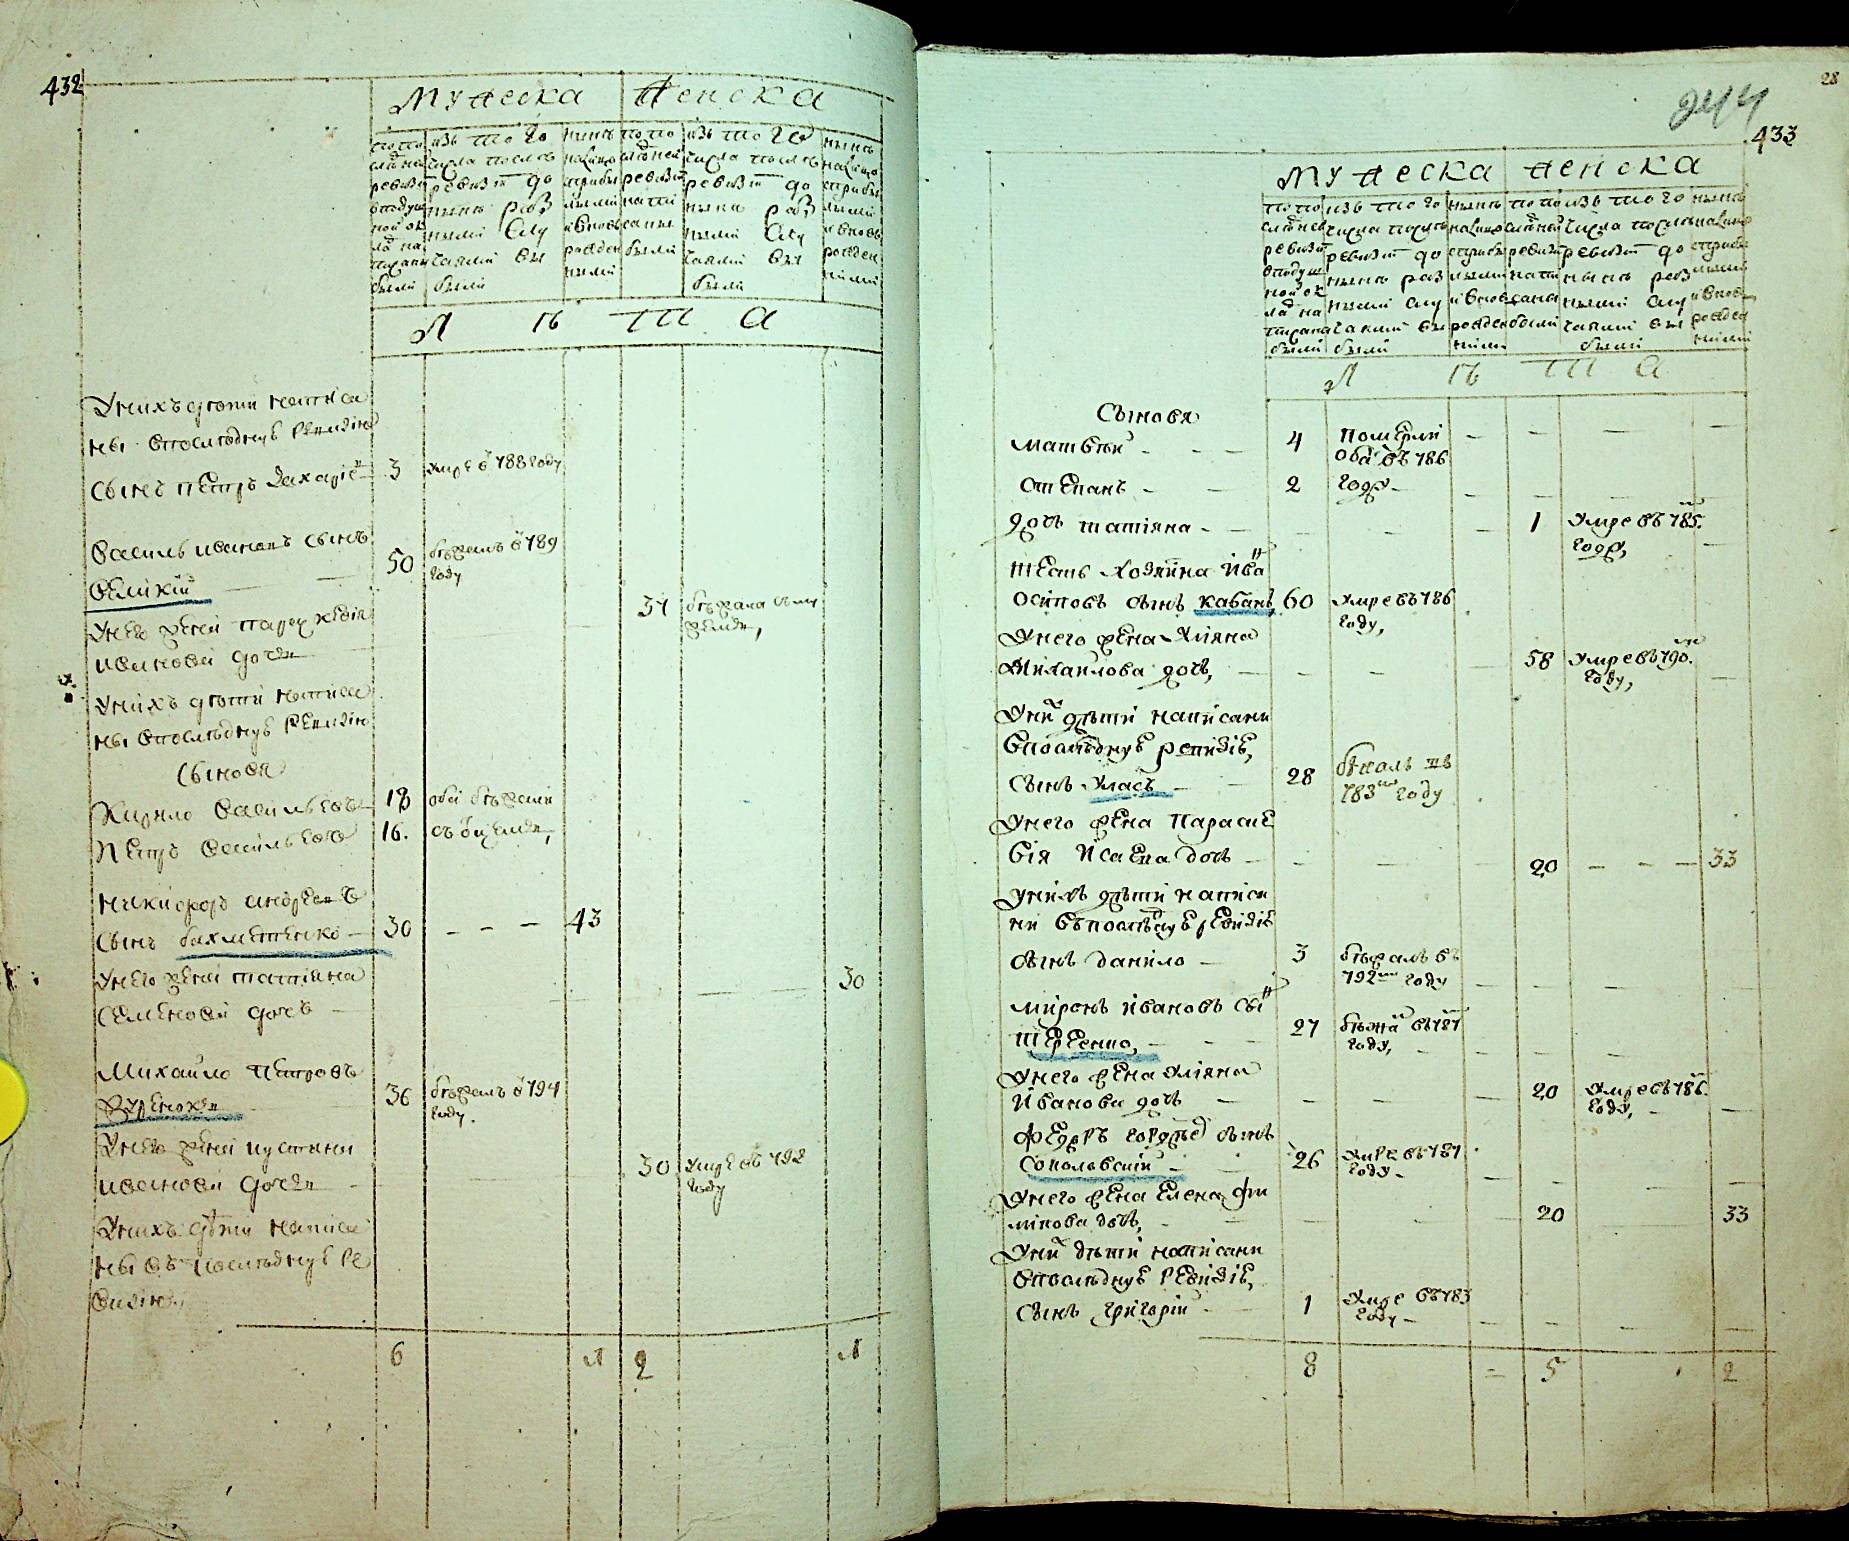 432
Мужеска Женска
по по
слѣдней
ревизіи
в подуш
ной ок
ладъ на
писано
были
изъ того
числа послѣ
ревизіи до
нынѣ раз
ными слу
чаями вы
были
нынѣ
на лицо
съ прибы
лыми
и вновь
рожден
ными
по по
слѣдней
ревизіи
напи
саны
были
изъ того
числа послѣ
ревизіи до
нынѣ раз
ными слу
чаями вы
были
нынѣ
на лицо
съ прибы
лыми
и вновь
рожден
ными
Л ѣ т а
У нихъ дѣти написа
ны в последнуѣ ревизію
сынъ Петръ Захарієвъ 3 умре в 788 году
Василь Ивановъ сынъ
Великій 50 бѣжалъ в 789 году
у него жена Парасковія
Иванова дочь 37 бѣжала съ мужемъ
У нихъ дѣти написа
ны в последнуѣ ревизію
Сыновя
Кирило Васильєвъ 18 оба бѣжали
Петръ Васильєвъ 16. съ оцемъ,
Никифоръ Андрєевъ
сынъ Бахметенко 30 - - - 43
у него жена Татіяна
Семенова дочь 30
Михайло Петровъ
36 бѣжалъ в 794 году.
У него жена Иустина
Иванова дочь 30 умре въ 792 году
У нихъ дѣти написа
ны въ последнуѣ ре
визію,
6 1 2 1
28
244
433
Мужеска Женска
по по
слѣдней
ревизіи
в подуш
ной ок
ладъ на
писано
были
изъ того
числа послѣ
ревизіи до
нынѣ раз
ными слу
чаями вы
были
нынѣ
на лицо
съ прибы
лыми
и вновь
рожден
ними
по по
слѣдней
ревизіи
напи
саны
были
изъ того
числа послѣ
ревизіи до
нынѣ раз
ними слу
чаями вы
были
нынѣ
на лицо
съ прибы
лыми
и вновь
рожден
ними
Л ѣ т а
Сыновя
Матвѣй 4 Померли
оба въ 786
Степанъ 2 году
дочь Татіяна 1 умре въ 785. году,
тесть хозяина Ива
Осиповъ сынъ Кабанъ, 60 умре въ 786 году,
У него жена Уліяна
Михайлова дочь, 58 умре въ 790. году,
У них дѣти написани
в последнуѣ ревизіѣ,
сынъ Уласъ 28 бѣжалъ въ 783 году
У него жена Параске
вія Исаева дочь 20 - - - 33
У нихъ дѣти написа
ни въ последнуѣ ревизіѣ
сынъ Данило 3 бѣжалъ въ 792 году
Миронъ Ивановъ сы
27 бѣжа въ 787 году,
У него жена Уліяна
Иванова дочь 20 умре въ 786. году,
Федоръ сынъ
Соколовскій 26 умре въ 787 году
У него жена Елена
дочь, 20 33
У них дѣти написани
в последнуѣ ревизіѣ,
сынъ Григорій 1 умре въ 783 году
8 = 5 2